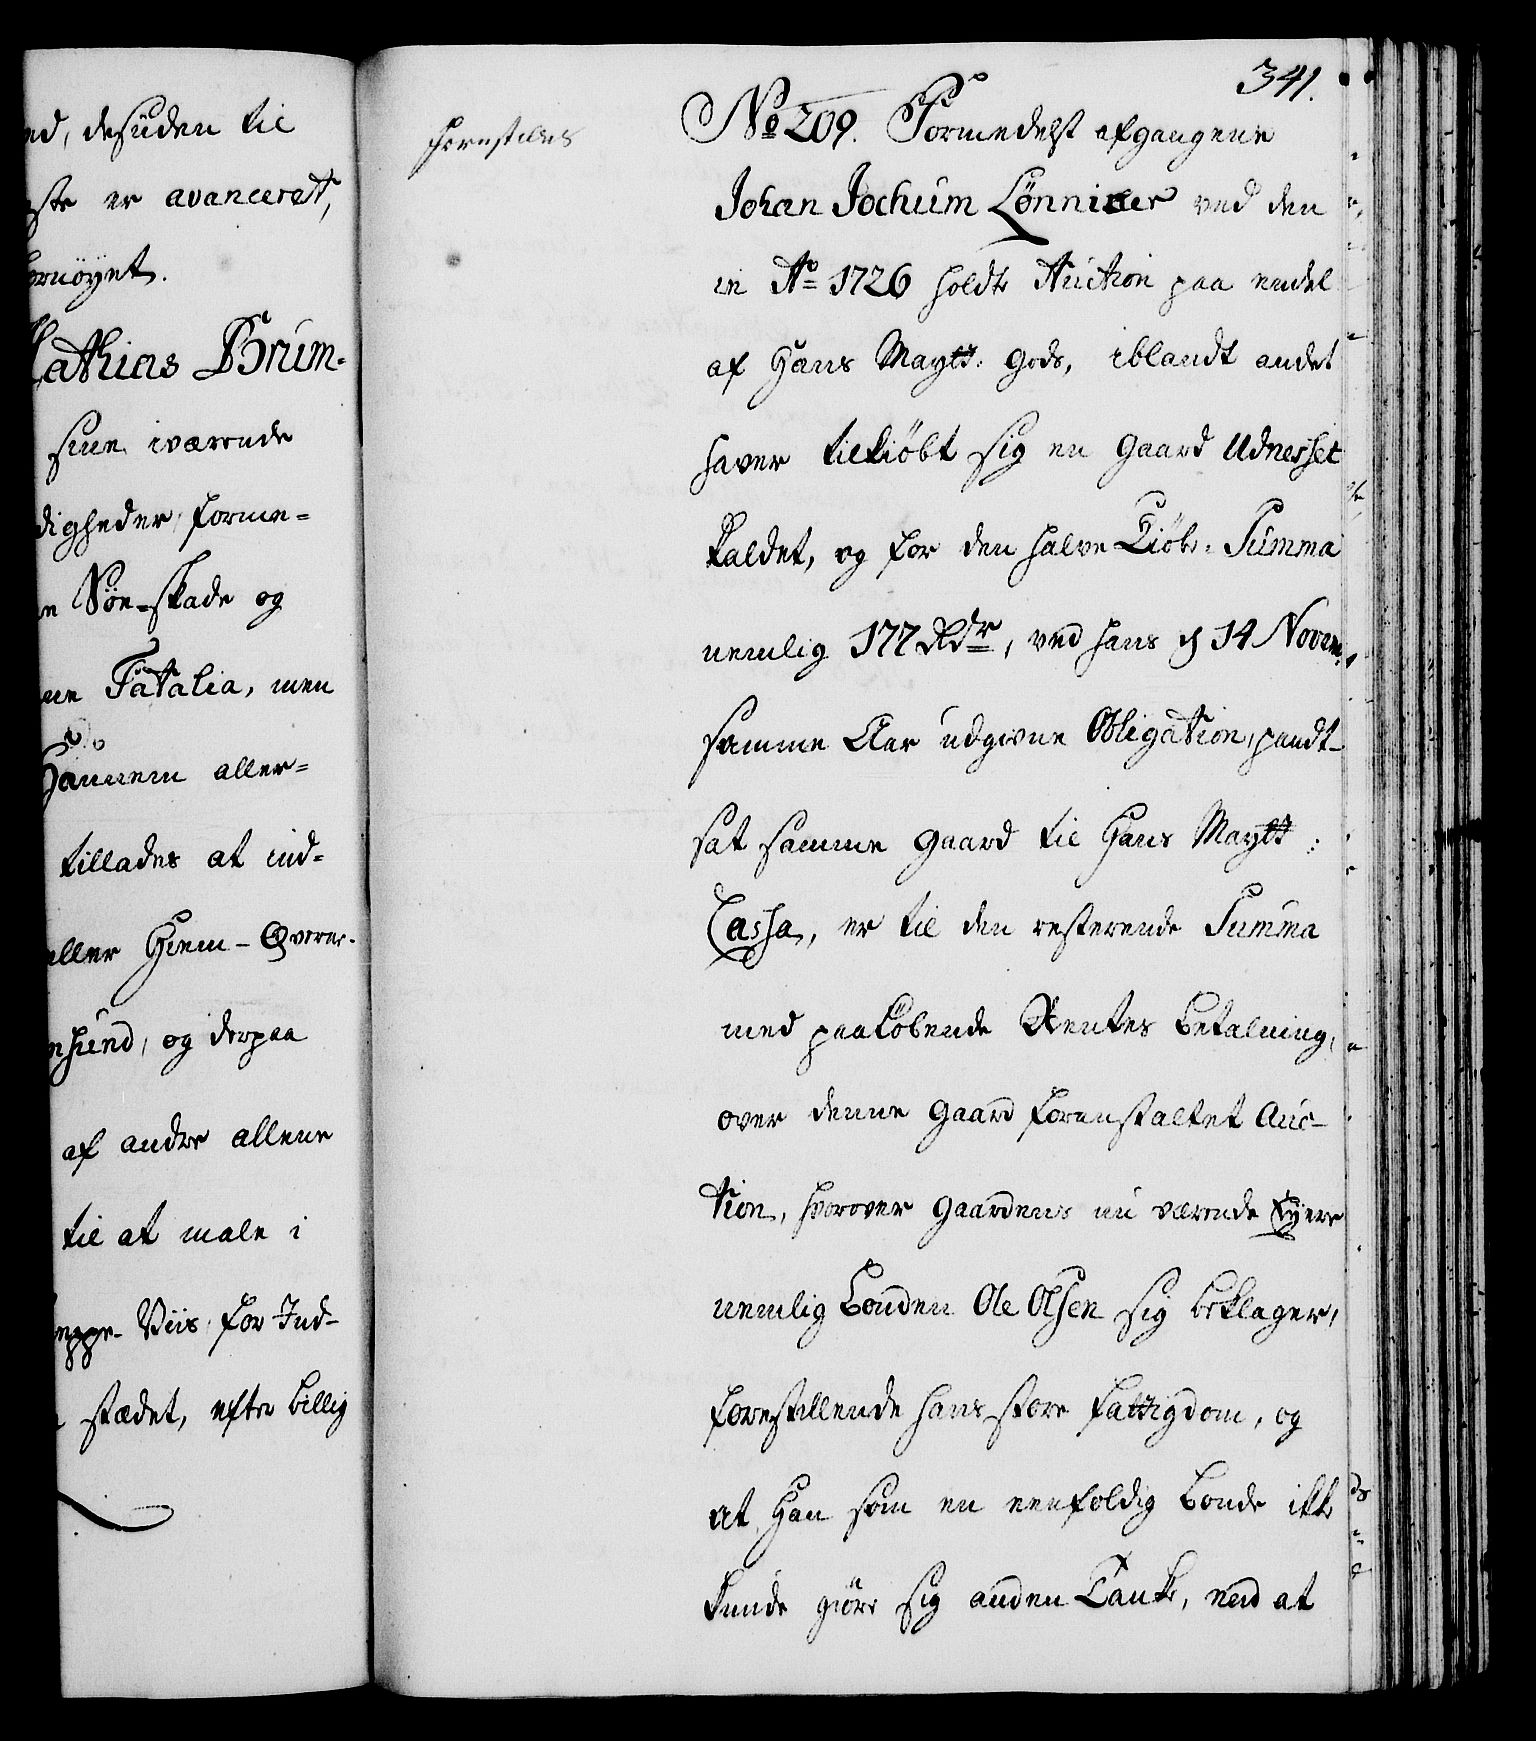 ed, desuden til
ste er avanceret,
fornöyet.
Mathias Brum-
sine iværende
digheder, forme-
Söe-skade og
ne Fatalia, men
Hannem aller-
tillades at ind-
eller Hiem-Qverne-
sund, og derpaa
af andre allene
til at male i
Viis for Ind-
stædet, efter billig
341.
Forestilles
No 209. Formedelst afgangene
Johan Jochum Lønniker ved den
in Ao 1726 holdte Auction paa endel
af Hans Maytt: Gods, iblandt andet
haver tilkiöbt sig en Gaard Udnesset
kaldet, og for den halve Kiöbe-Summa
nemlig 177 Rdr, ved hans d 14 Novem:
samme Aar udgivne Obligation, pandt-
sat samme Gaard til Hans Maytt:
Cassa, er til den resterende Summa
med paaløbende Rentes Betalning,
over denne Gaard foranstaltet Auc-
tion, hvorover Gaardens nu værende Eyere
nemlig Bonden Ole Olsen sig beklager,
forestillende hans store Fattigdom, og
at Han som en eenfoldig Bonde ikke
kunde giöre sig anden Tanke, end at